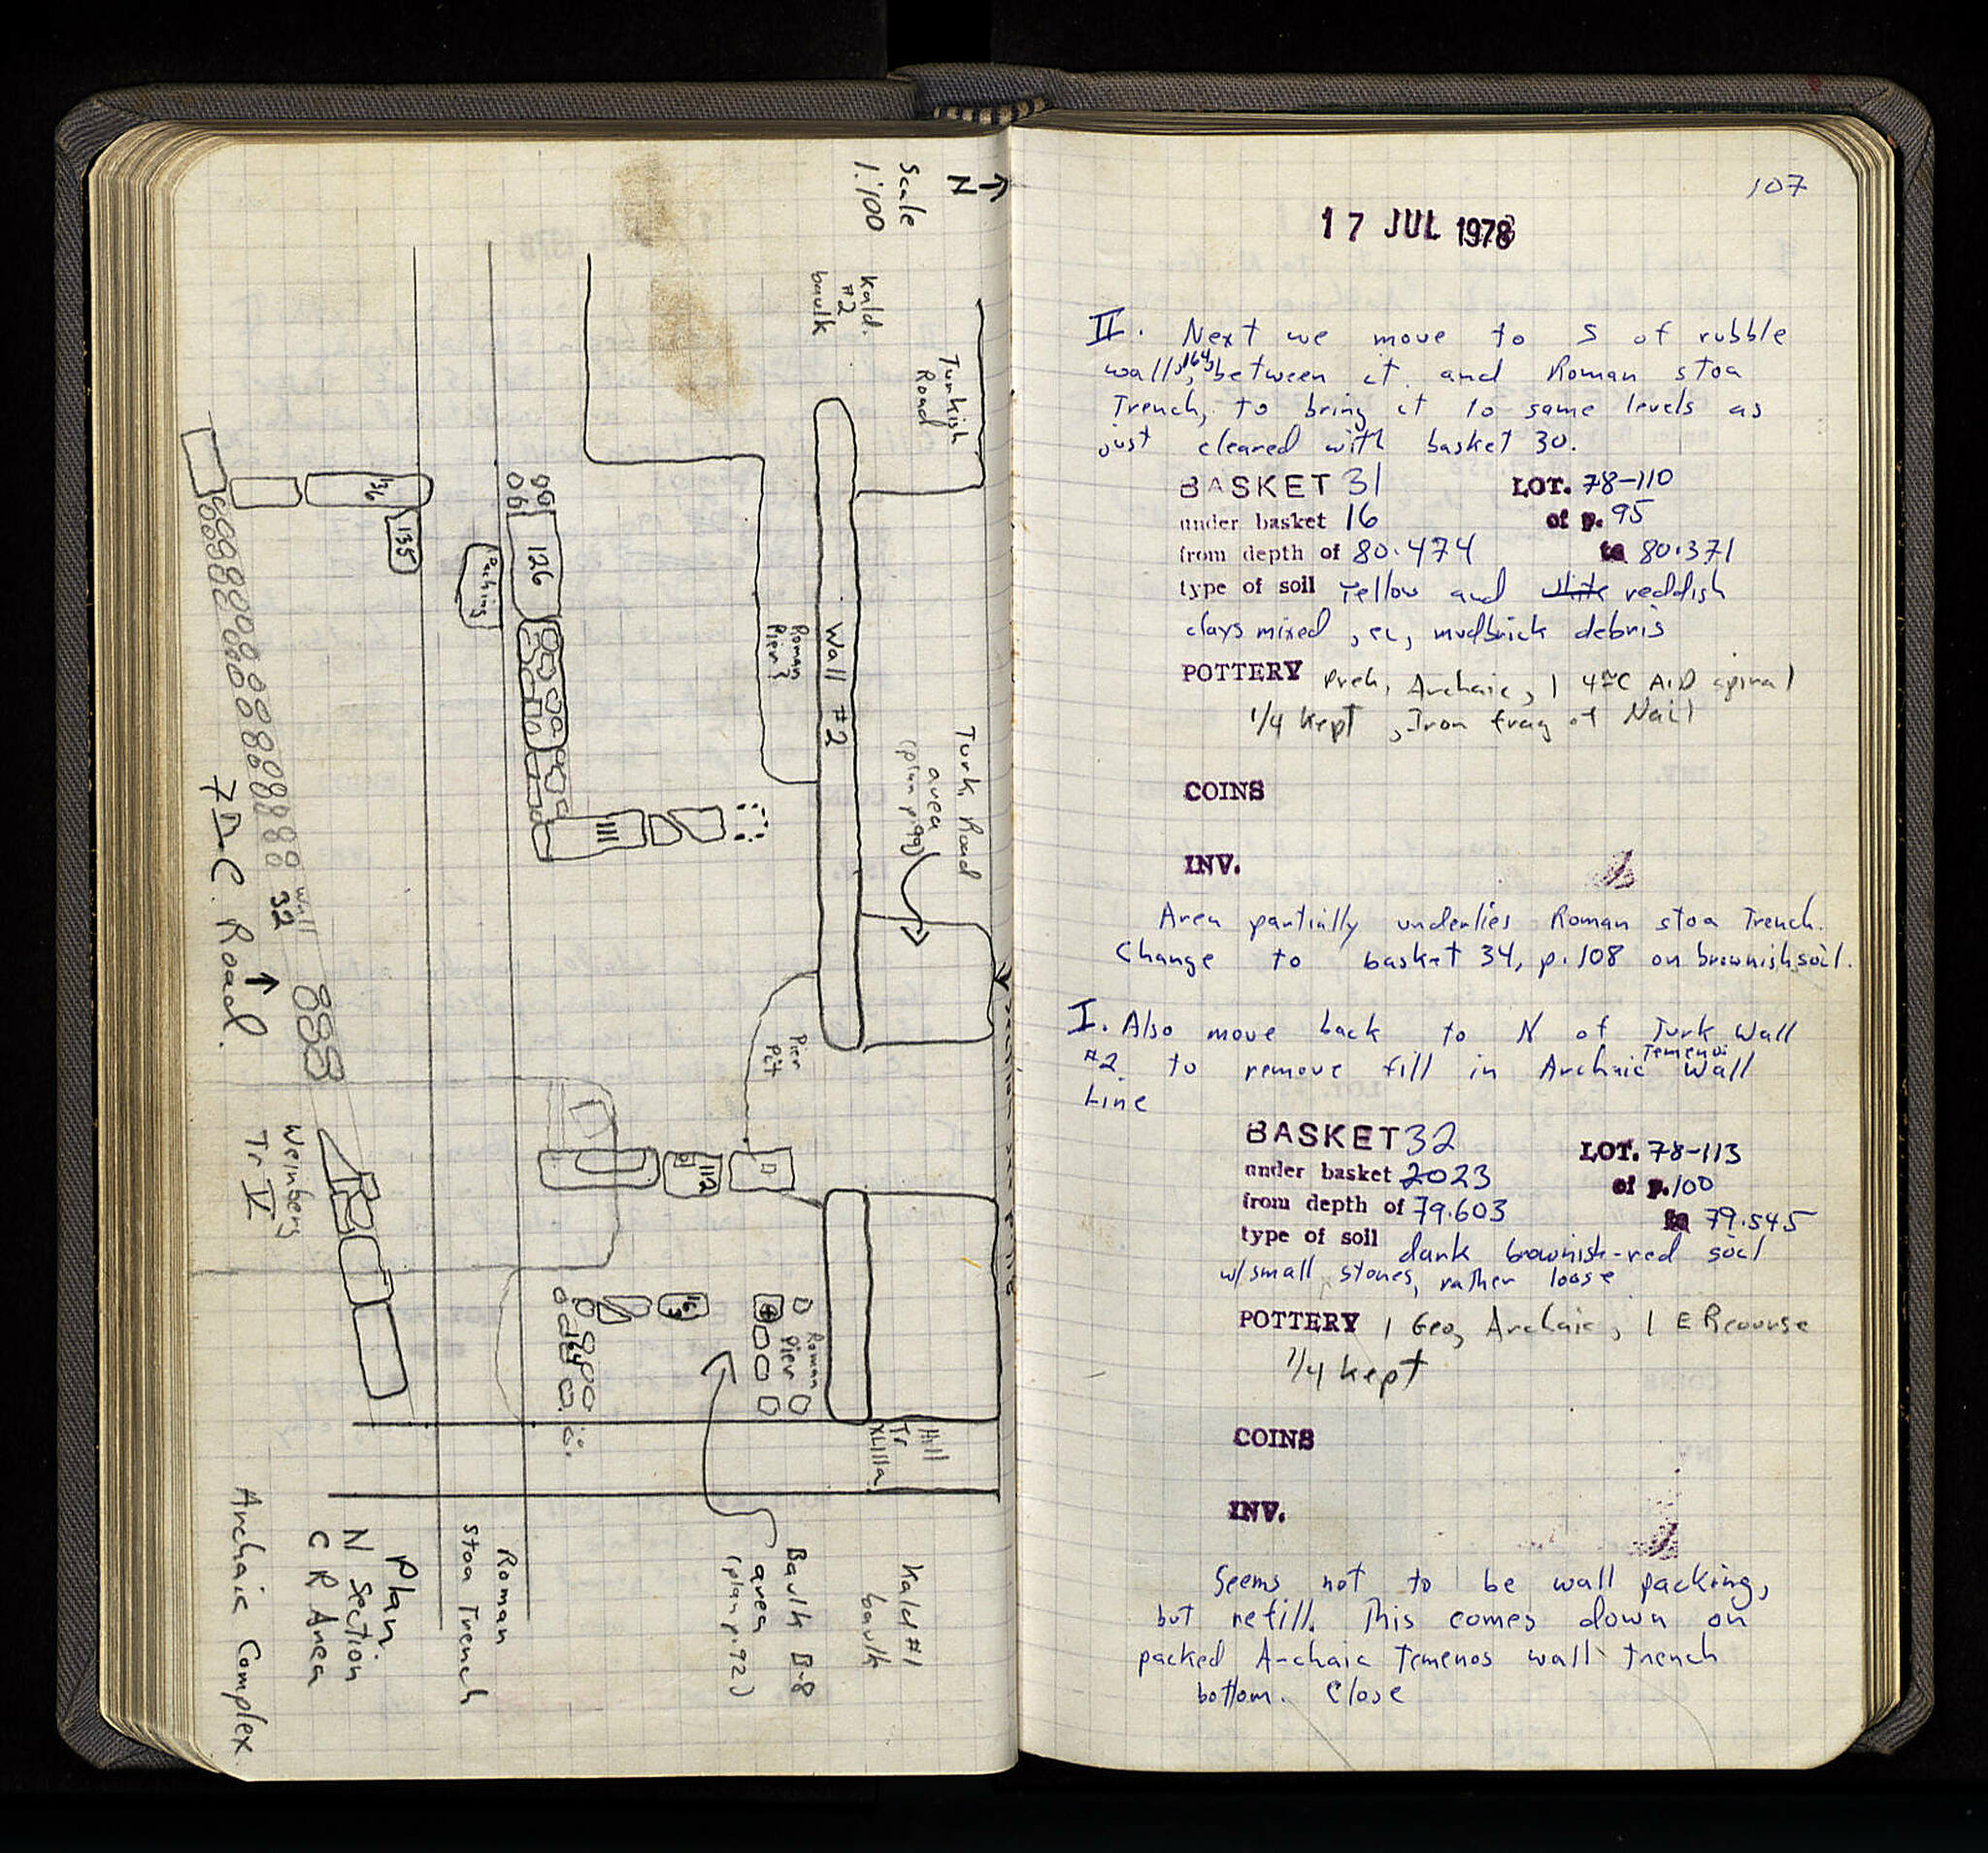 N →
Scale
1:100
Kald.
#2
baulk
Turkish
Road
Wall #2
Roman
Pier 3
Turk. Road
area
(plan p. 99)
Pier
Pit
136
135
Packing
126
111
Wall
32
7th C. Road.
Weinberg
Tr V
112
163
164
Roman
Pier
Hill
Tr
XLIIIa
Kald #1
baulk
Baulk B-8
area
(plan p. 92)
Roman
Stoa Trench
Plan.
N Section
C R Area
Archaic Complex.
107
17 JUL 1978
II. Next we move to S of rubble
wall 164, between it and Roman stoa
Trench, to bring it to same levels as
just cleared with basket 30.
BASKET 31 LOT. 78-110
under basket 16 of p. 95
from depth of 80.474 to 80.371
type of soil Yellow and white reddish
clays mixed, ie, mudbrick debris
POTTERY Preh, Archaic, 1 4th C A.D spiral
1/4 kept, Iron frag of Nail
COINS
INV.
Area partially underlies Roman stoa Trench.
Change to basket 34, p. 108 on brownish soil.
I. Also move back to N of Turk Wall
#2 to remove fill in Archaic Temenos Wall
Line
BASKET 32 LOT. 78-113
under basket 2023 of p. 100
from depth of 79.603 to 79.545
type of soil dark brownish-red soil
w/ small stones, rather loose
POTTERY 1 Geo, Archaic, 1 E Rcourse
1/4 kept
COINS
INV.
Seems not to be wall packing,
but refill. This comes down on
packed Archaic Temenos wall trench
bottom. Close